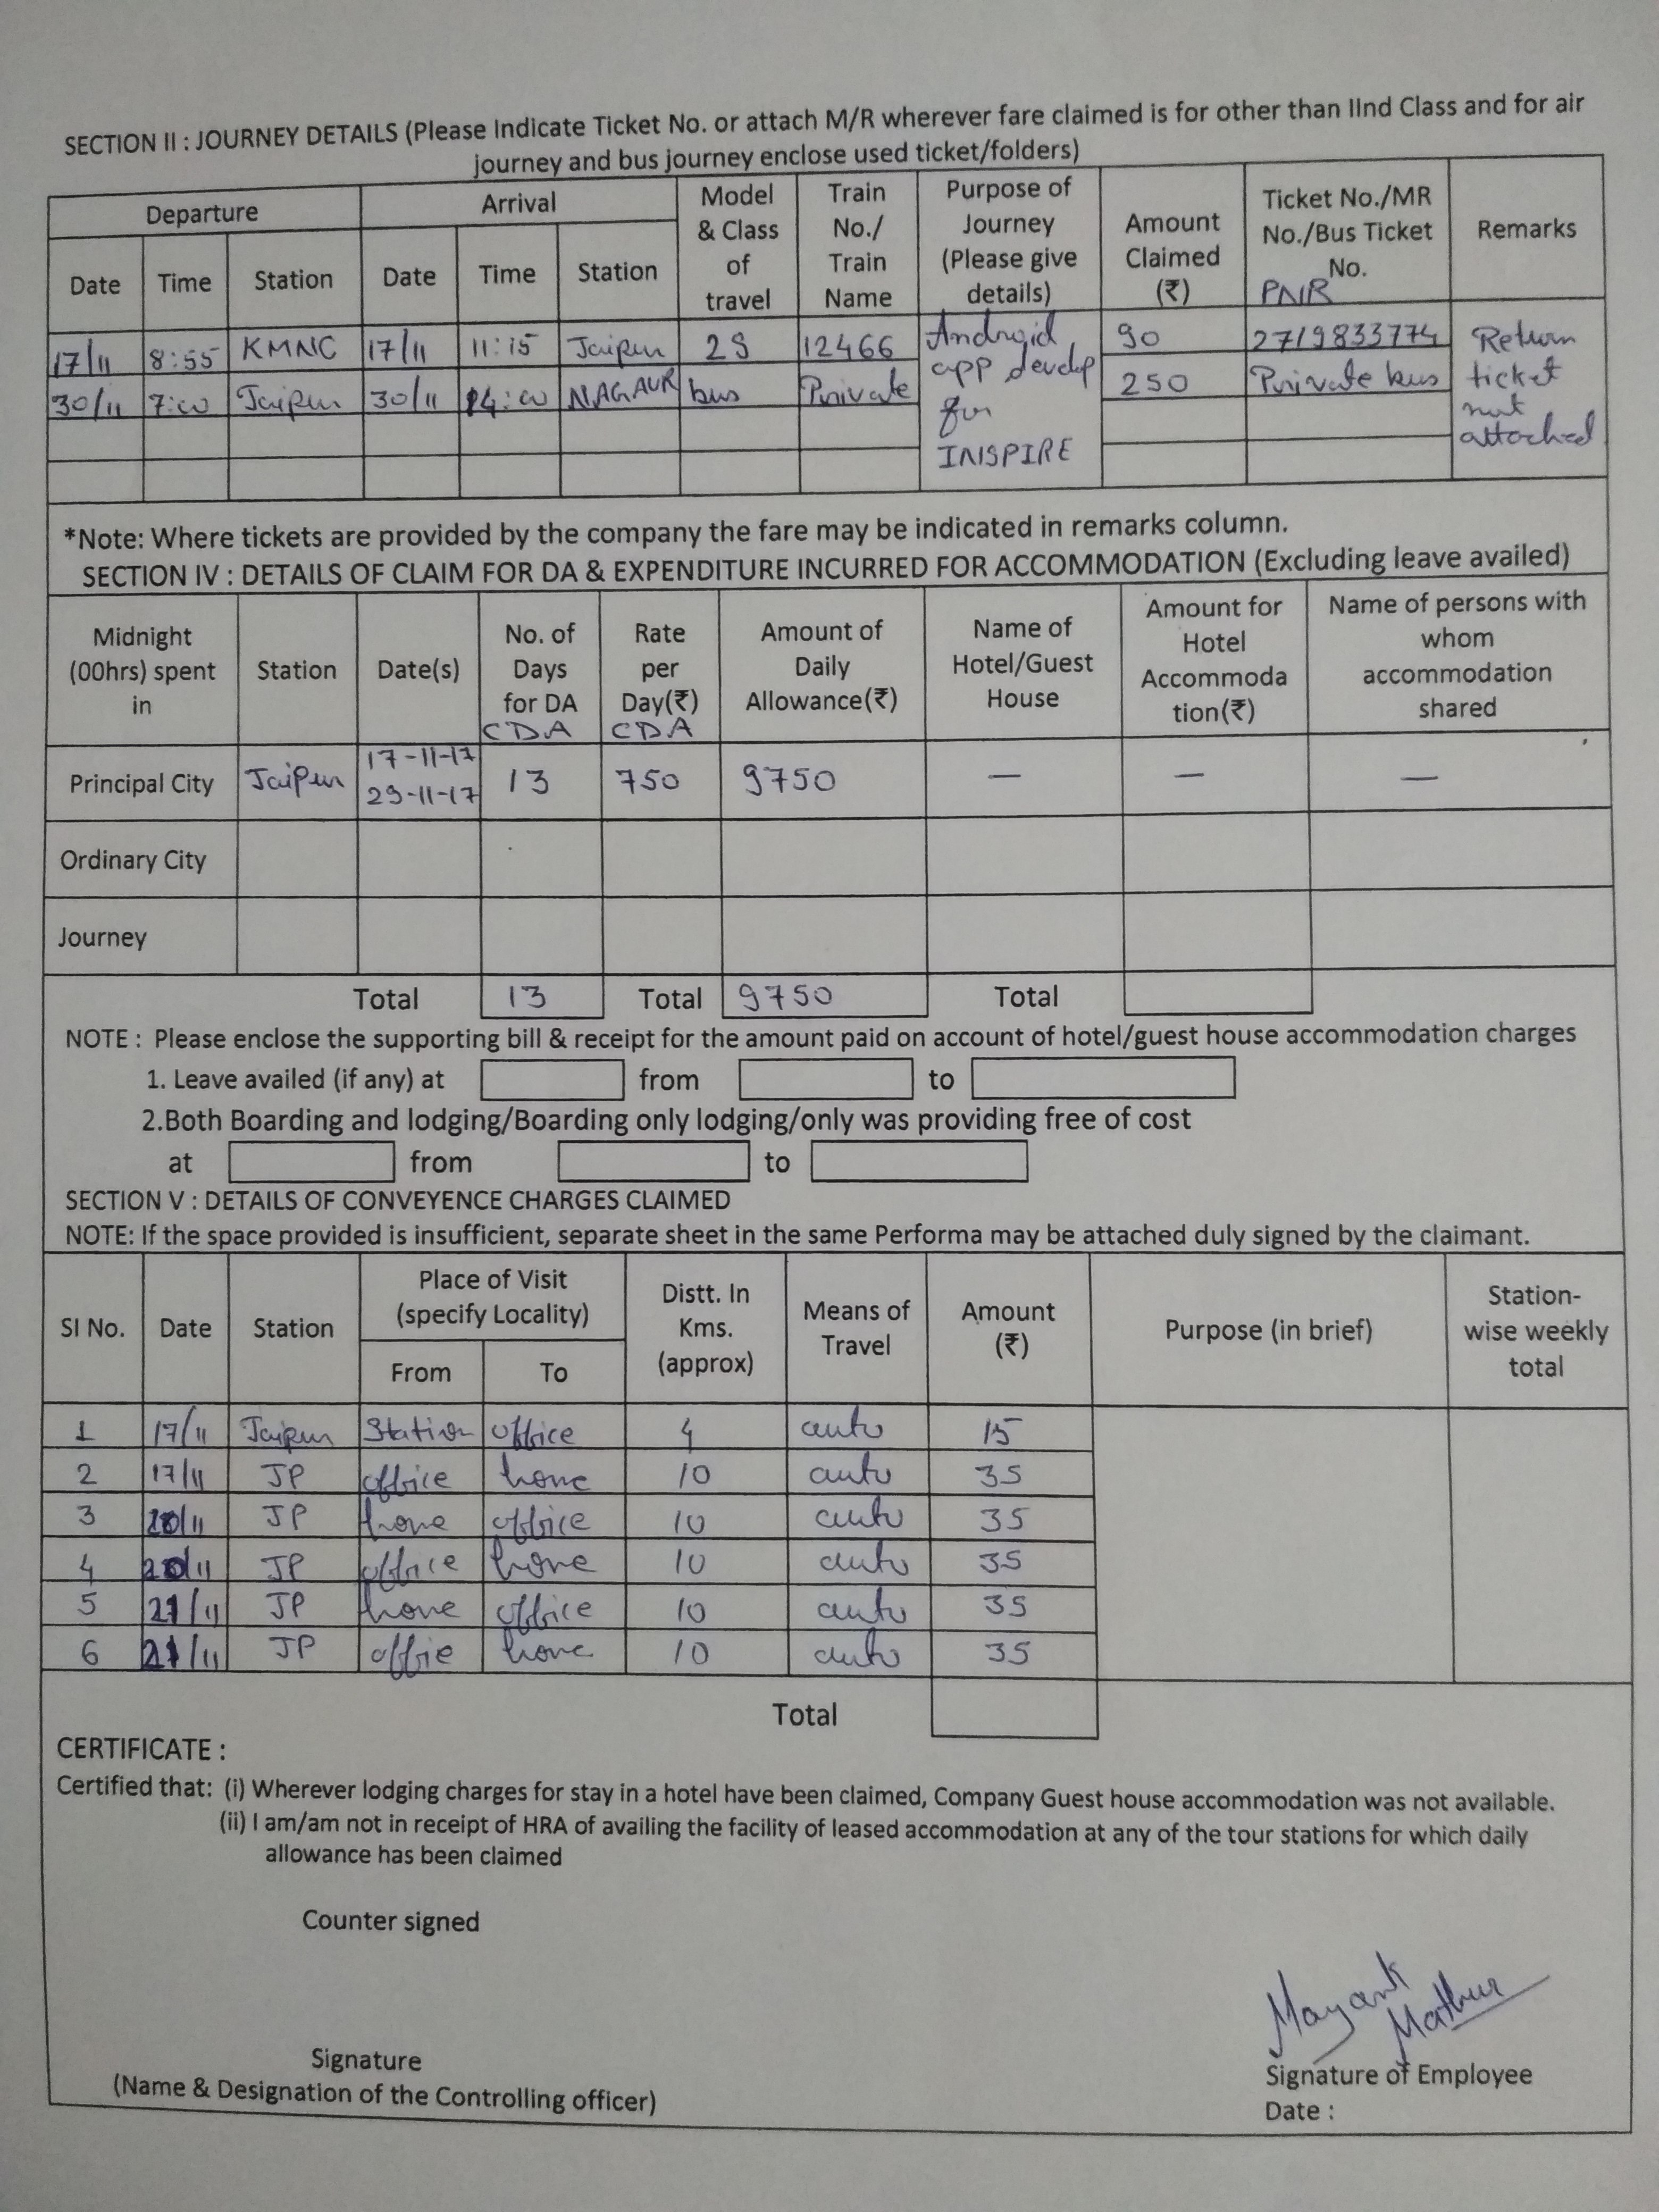 SECTION II : JOURNEY DETAILS (Please Indicate Ticket No. or attach M/R wherever fare claimed is for other than IInd Class and for air
journey and bus journey enclose used ticket/folders)
Departure Arrival Model & Class of travel Train No./ Train Name Purpose of Journey (Please give details) Amount Claimed (₹) Ticket No./MR No./Bus Ticket No. PNR Remarks
Date Time Station Date Time Station
17/11 8:55 KMNC 17/11 11:15 Jaipur 2S 12466 Android app develp for INSPIRE 90 2719833774 Return ticket not attached
30/11 7:00 Jaipur 30/11 14:00 NAGAUR bus Private 250 Private bus
*Note: Where tickets are provided by the company the fare may be indicated in remarks column.
SECTION IV : DETAILS OF CLAIM FOR DA & EXPENDITURE INCURRED FOR ACCOMMODATION (Excluding leave availed)
Midnight (00hrs) spent in Station Date(s) No. of Days for DA CDA Rate per Day(₹) CDA Amount of Daily Allowance(₹) Name of Hotel/Guest House Amount for Hotel Accommoda tion(₹) Name of persons with whom accommodation shared
Principal City Jaipur 17-11-17 29-11-17 13 750 9750 — — —
Ordinary City
Journey
Total 13 Total 9750 Total
NOTE : Please enclose the supporting bill & receipt for the amount paid on account of hotel/guest house accommodation charges
1. Leave availed (if any) at from to
2.Both Boarding and lodging/Boarding only lodging/only was providing free of cost
at from to
SECTION V : DETAILS OF CONVEYENCE CHARGES CLAIMED
NOTE: If the space provided is insufficient, separate sheet in the same Performa may be attached duly signed by the claimant.
SI No. Date Station Place of Visit (specify Locality) Distt. In Kms. (approx) Means of Travel Amount (₹) Purpose (in brief) Station-wise weekly total
From To
1 17/11 Jaipur Station office 4 auto 15
2 17/11 JP office home 10 auto 35
3 20/11 JP home office 10 auto 35
4 20/11 JP office home 10 auto 35
5 21/11 JP home office 10 auto 35
6 21/11 JP offie home 10 auto 35
Total
CERTIFICATE :
Certified that: (i) Wherever lodging charges for stay in a hotel have been claimed, Company Guest house accommodation was not available.
(ii) I am/am not in receipt of HRA of availing the facility of leased accommodation at any of the tour stations for which daily
allowance has been claimed
Counter signed
Mayank Mathur
Signature
(Name & Designation of the Controlling officer)
Signature of Employee
Date :